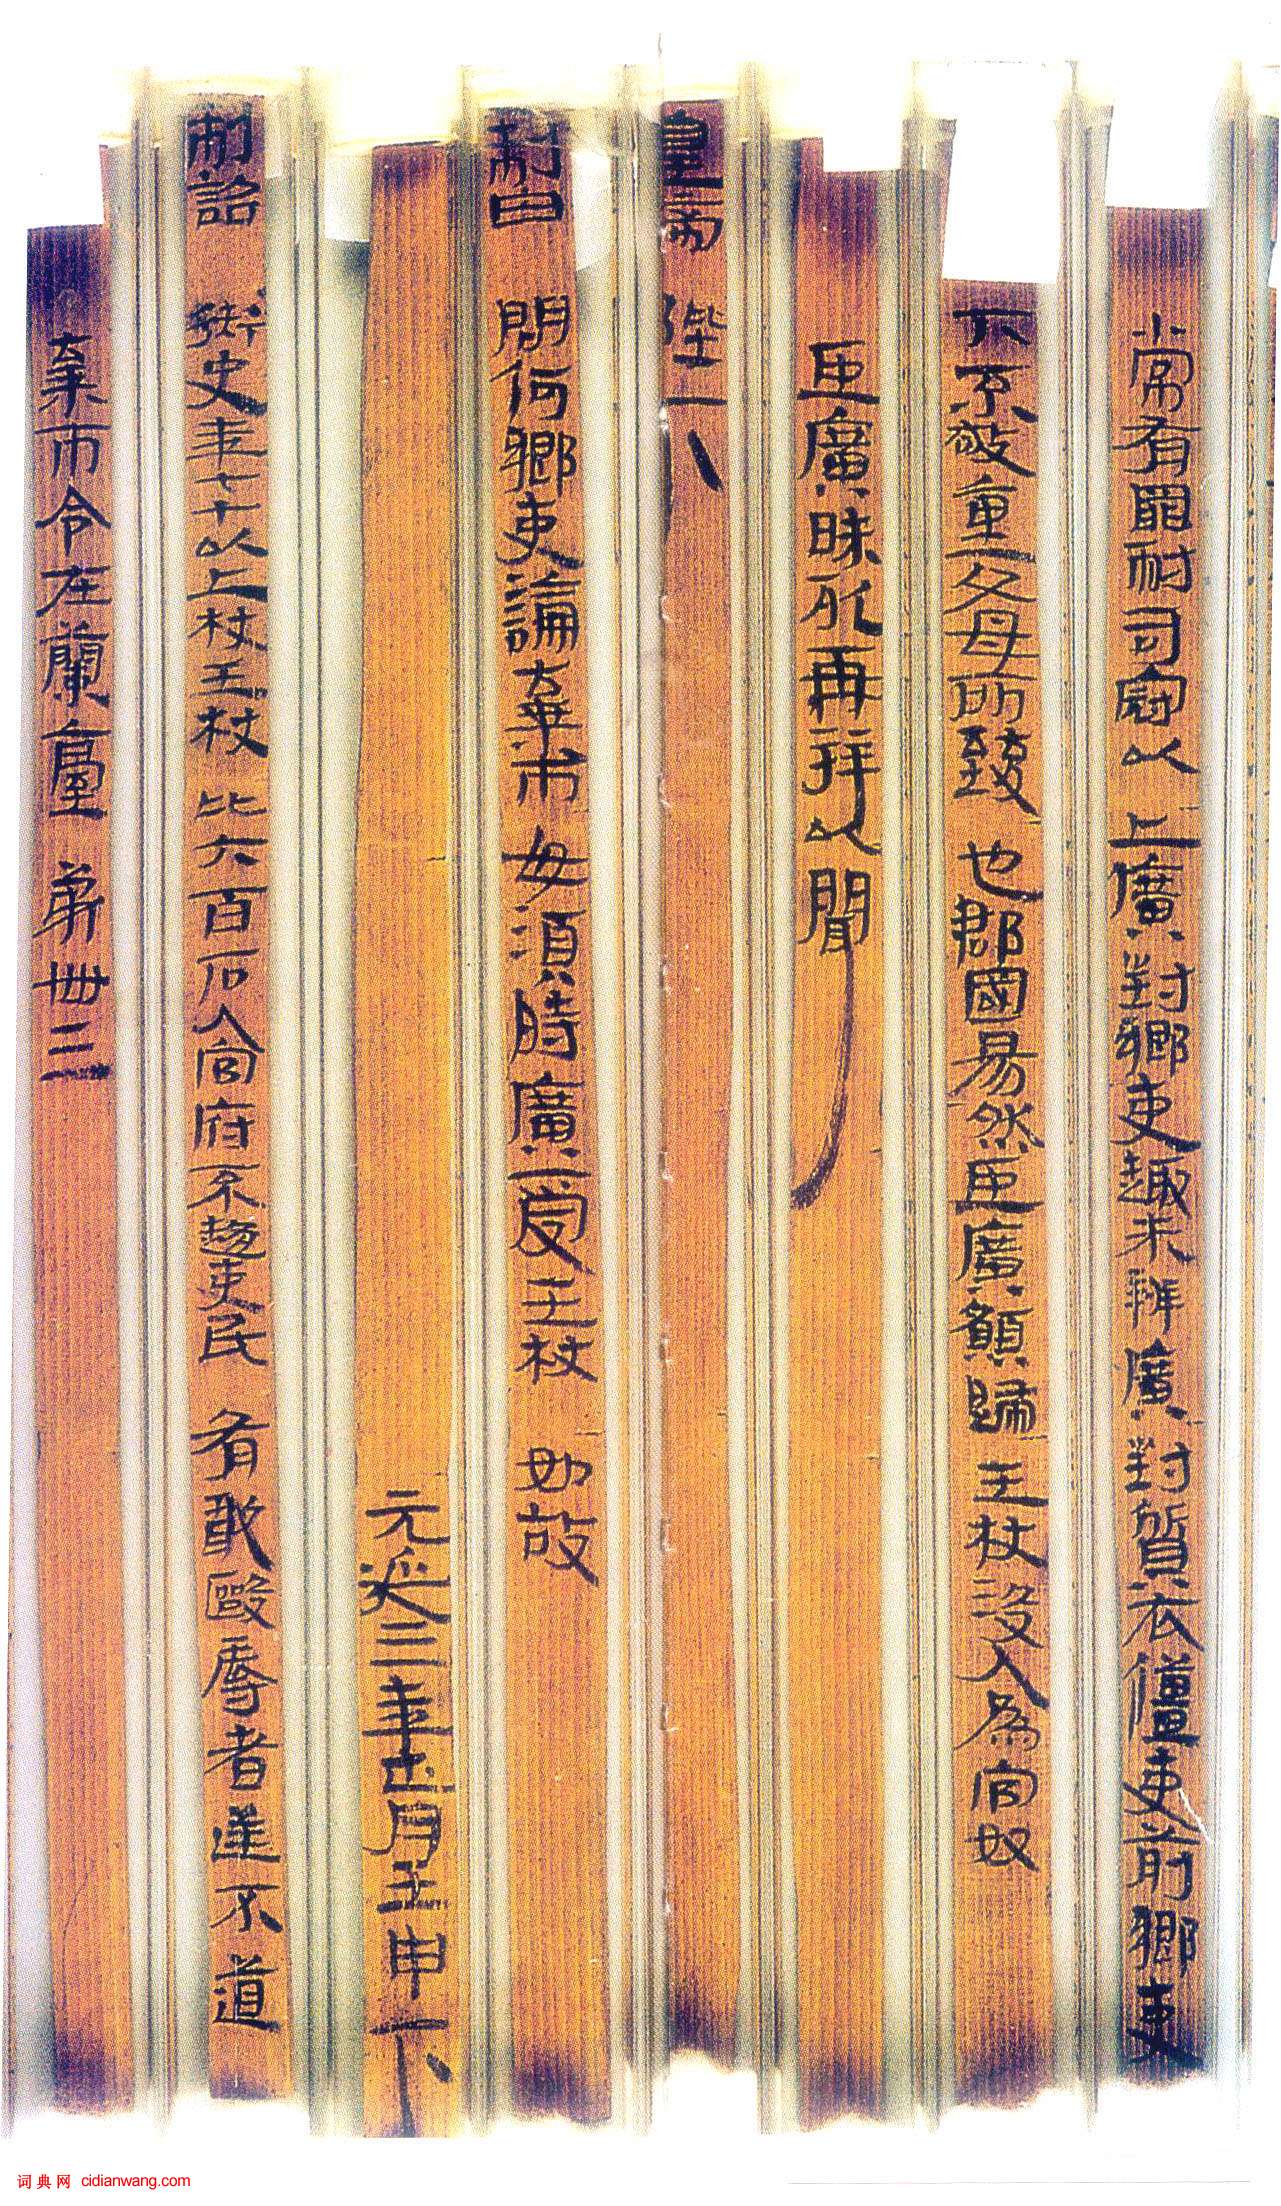 小常有罰耐司寇以上廣對鄉吏趣未辨廣對質衣僵吏前鄉吏
下不敬重父母所致也郡國易然臣廣願歸王杖没入為官奴
臣廣昧死再拜以聞
皇帝陛下
制曰問何鄉吏論棄市毋須時廣受王杖如故
元延三年正月壬申下
制詔御史年七十以上杖王杖比六百石入官府不趨吏民有敢毆辱者逆不道
棄市令在蘭臺第卌三
词典网 cidianwang.com